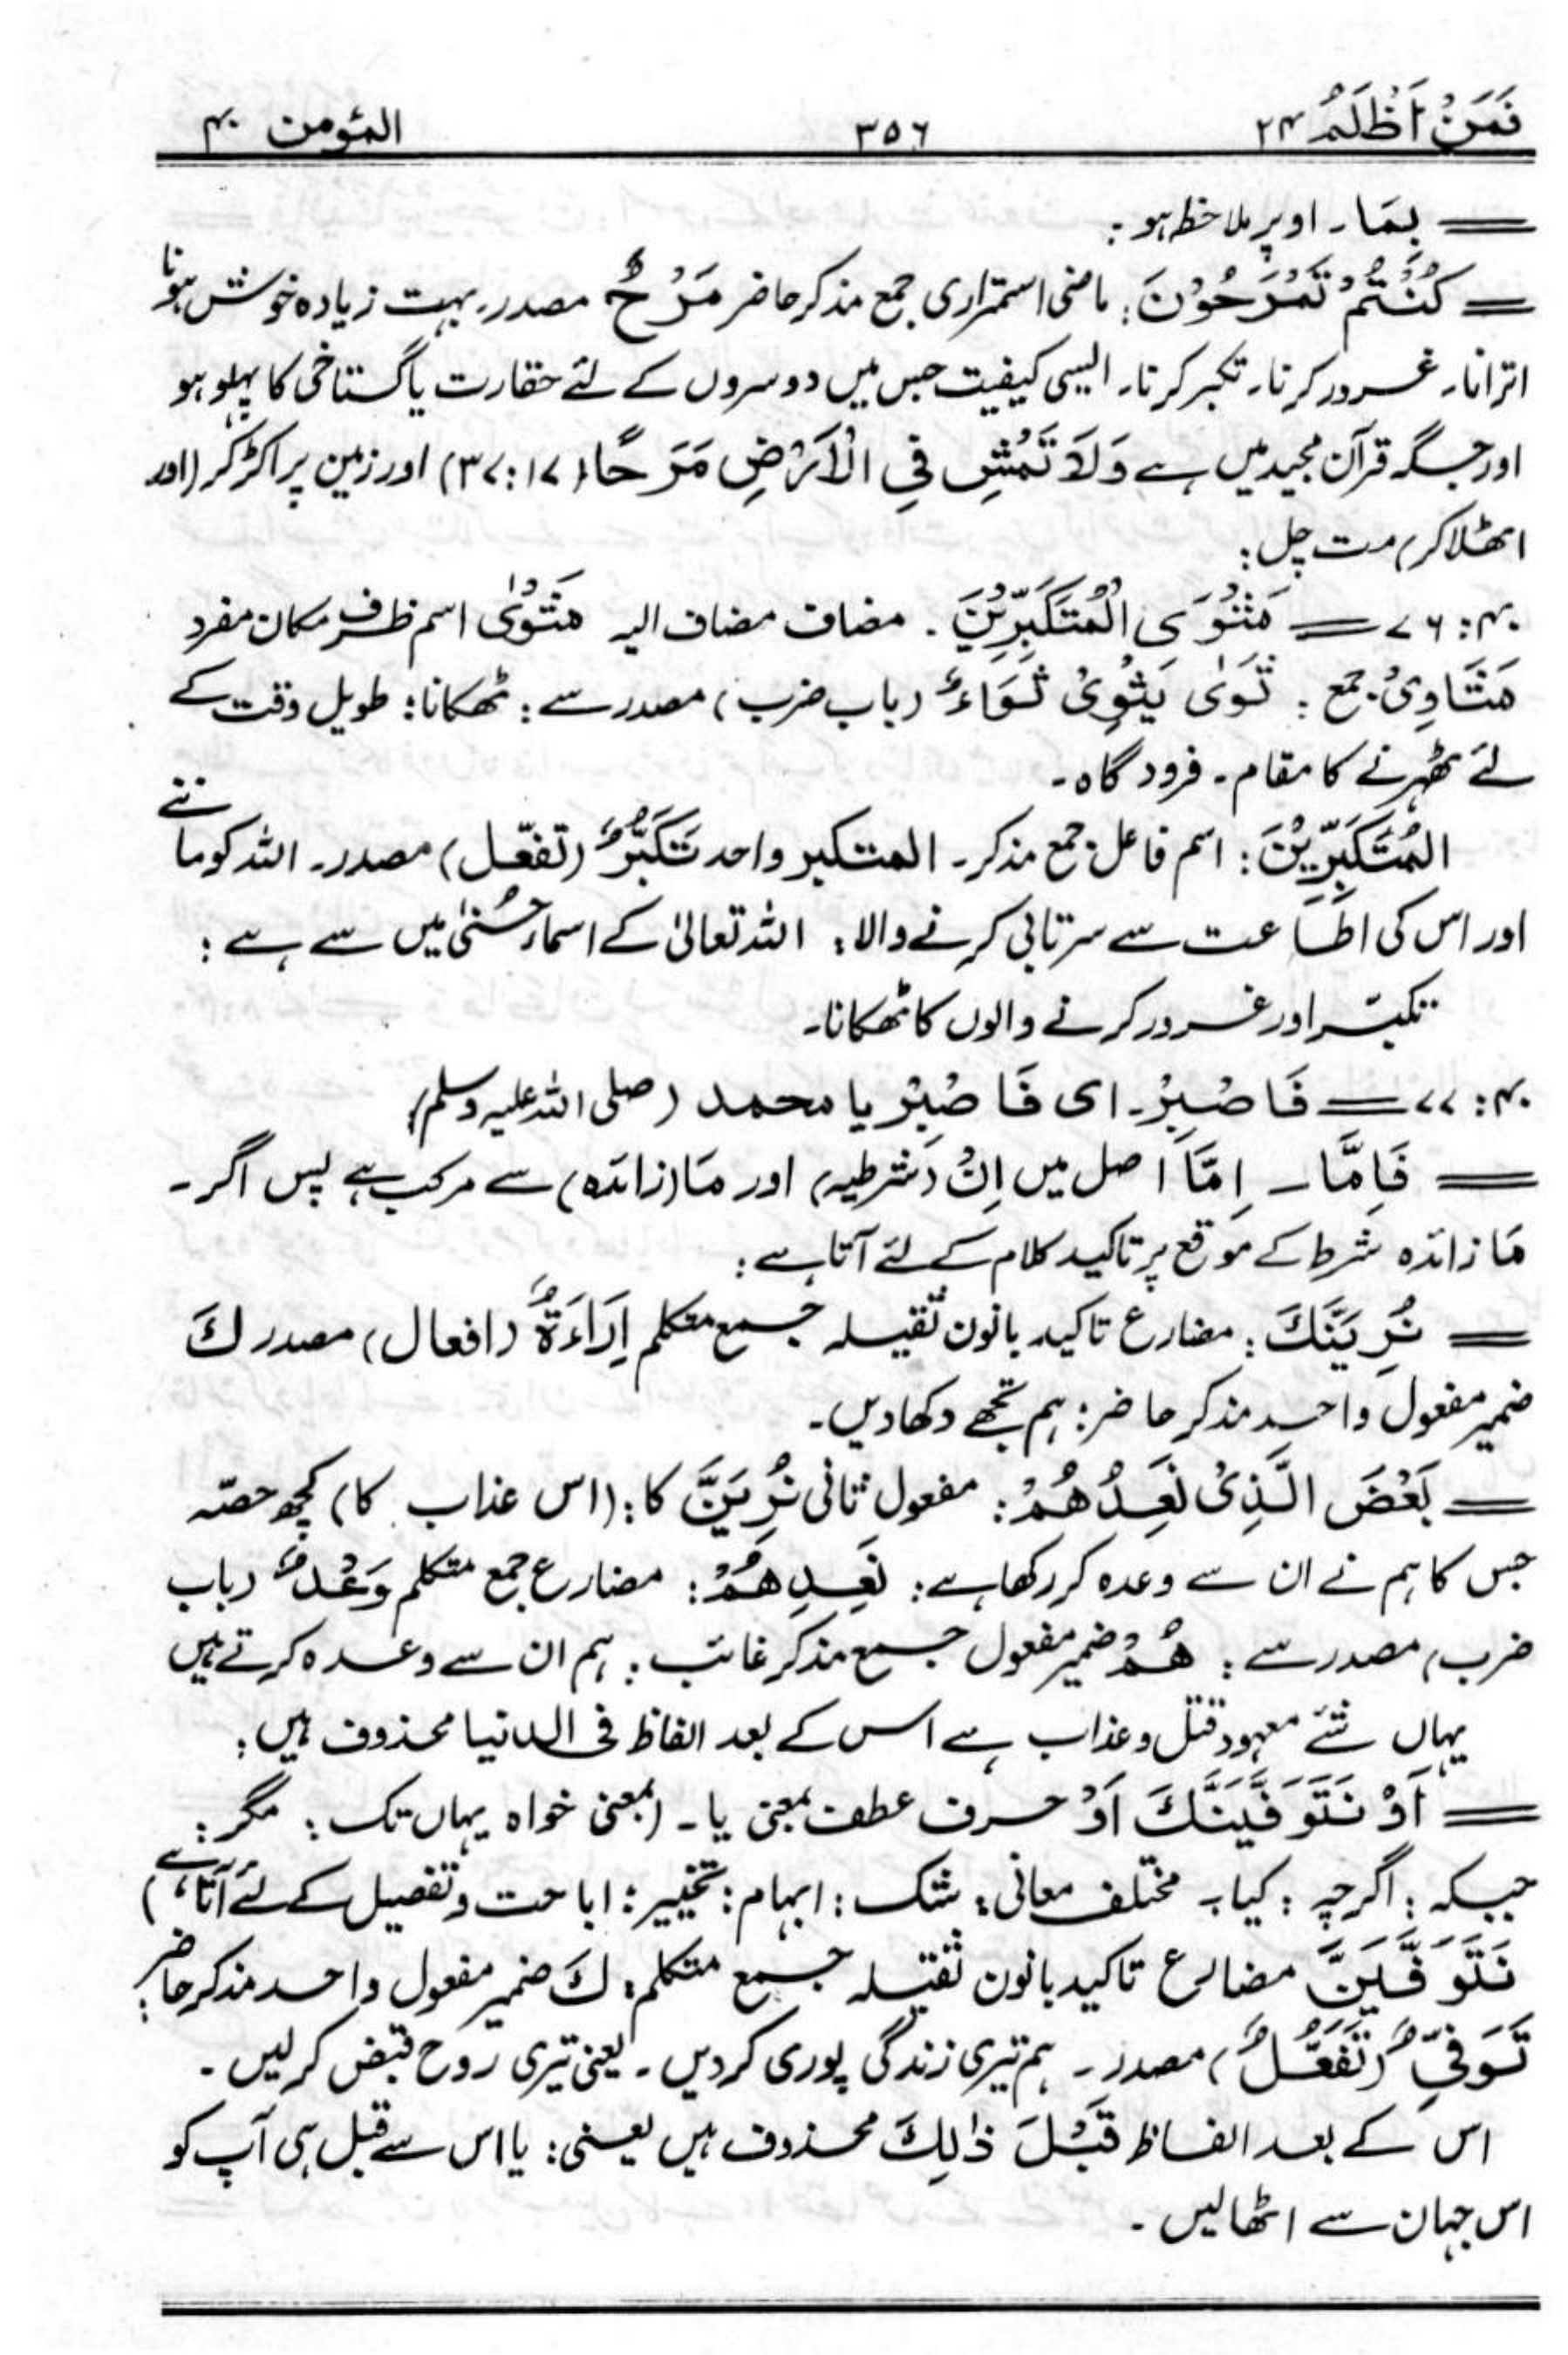 فَمَنْ اَظْلَمُ ۲۴ ۳۵۶ المؤمن ۴۰
= بِمَا۔ اوپر ملاحظہ ہو:
= كُنْتُمْ تَمْرَحُوْنَ: ماضی استمراری جمع مذکر حاضر مَرْحٌ مصدر۔ بہت زیادہ خوش ہونا
اترانا۔ غرور کرنا۔ تکبر کرنا۔ ایسی کیفیت جس میں دوسروں کے لئے حقارت یا گستاخی کا پہلو ہو
اور جگہ قرآن مجید میں ہے وَلَا تَمْشِ فِي الْاَرْضِ مَرَحًا (۱۷:۳۷) اور زمین پر اکڑ کر (اور
اٹھلا کر) مت چل:
۴۰: ۷۶ = مَثْوَى الْمُتَكَبِّرِيْنَ۔ مضاف مضاف الیہ مَثْوٰى اسم ظرف مکان مفرد
مَثَاوِىْ جمع: ثَوٰى يَثْوِىْ ثَوَاءٌ (باب ضرب) مصدر سے: ٹھکانا: طویل وقت کے
لئے ٹھہرنے کا مقام۔ فرودگاہ۔
الْمُتَكَبِّرِيْنَ: اسم فاعل جمع مذکر۔ المتکبر واحد تَكَبُّرٌ (تفعّل) مصدر۔ اللہ کو ماننے
اور اس کی اطاعت سے سرتابی کرنے والا: اللہ تعالیٰ کے اسماء حُسنیٰ میں سے ہے:
تکبّر اور غرور کرنے والوں کا ٹھکانا۔
۴۰: ۷۷ = فَاصْبِرْ۔ ای فَاصْبِرْ یا محمد (صلی اللہ علیہ وسلم)
= فَاِمَّا۔ اِمَّا اصل میں اِنْ (شرطیہ) اور مَا (زائدہ) سے مرکب ہے پس اگر۔
مَا زائدہ شرط کے موقع پر تاکید کلام کے لئے آتا ہے:
= نُرِيَنَّكَ: مضارع تاکید بانون ثقیلہ جمع متکلم اِرَاءَةٌ (افعال) مصدر كَ
ضمیر مفعول واحد مذکر حاضر: ہم تجھے دکھا دیں۔
= بَعْضَ الَّذِىْ نَعِدُهُمْ: مفعول ثانی نُرِيَنَّ کا: (اس عذاب کا) کچھ حصّہ
جس کا ہم نے ان سے وعدہ کر رکھا ہے: نَعِدِهُمْ: مضارع جمع متکلم وَعْدٌ (باب
ضرب) مصدر سے: هُمْ ضمیر مفعول جمع مذکر غائب: ہم ان سے وعدہ کرتے ہیں
یہاں شئے معہود قتل و عذاب ہے اس کے بعد الفاظ فی الدنیا محذوف ہیں:
= اَوْ نَتَوَفَّيَنَّكَ اَوْ حرف عطف بمعنی یا۔ (بمعنی خواہ یہاں تک: مگر:
جبکہ: اگرچہ: کیا۔ مختلف معانی: شک: ابہام: تخییر: اباحت و تفصیل کے لئے آتا ہے)
نَتَوَفَّيَنَّ مضارع تاکید بانون ثقیلہ جمع متکلم: كَ ضمیر مفعول واحد مذکر حاضر:
تَوَفِّىٌ (تَفَعُّلٌ) مصدر۔ ہم تیری زندگی پوری کردیں۔ یعنی تیری روح قبض کرلیں۔
اس کے بعد الفاظ قَبْلَ ذٰلِكَ محذوف ہیں یعنی: یا اس سے قبل ہی آپ کو
اس جہان سے اٹھا لیں۔